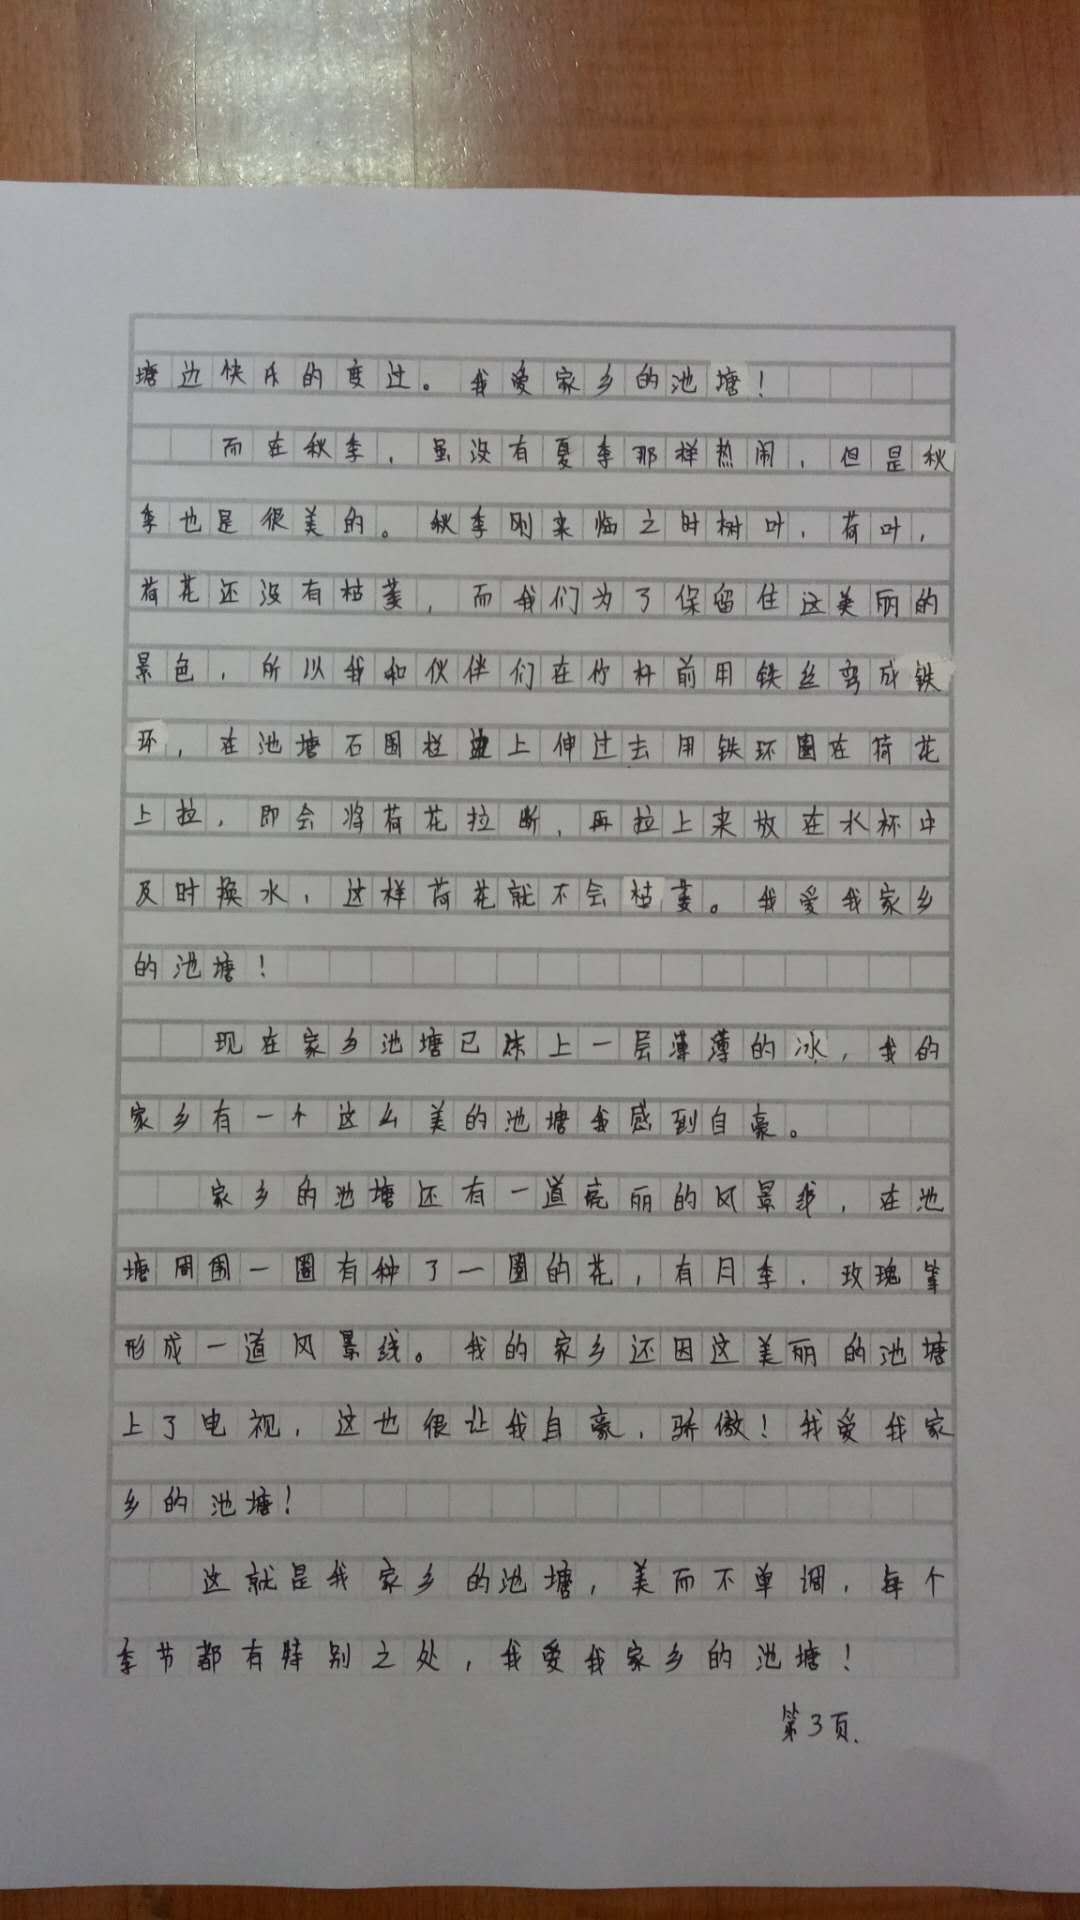 塘边快乐的度过。我爱家乡的池塘！
而在秋季，虽没有夏季那样热闹，但是秋
季也是很美的。秋季刚来临之时树叶，荷叶，
荷花还没有枯萎，而我们为了保留住这美丽的
景色，所以我和伙伴们在竹杆前用铁丝弯成铁
环，在池塘石围栏边上伸过去用铁环圈在荷花
上拉，即会将荷花拉断，再拉上来放在水杯中
及时换水，这样荷花就不会枯萎。我爱我家乡
的池塘！
现在家乡池塘已冻上一层薄薄的冰，我的
家乡有一个这么美的池塘我感到自豪。
家乡的池塘还有一道亮丽的风景线，在池
塘周围一圈有种了一圈的花，有月季，玫瑰等
形成一道风景线。我的家乡还因这美丽的池塘
上了电视，这也很让我自豪，骄傲！我爱我家
乡的池塘！
这就是我家乡的池塘，美而不单调，每个
季节都有特别之处，我爱我家乡的池塘！
第3页.